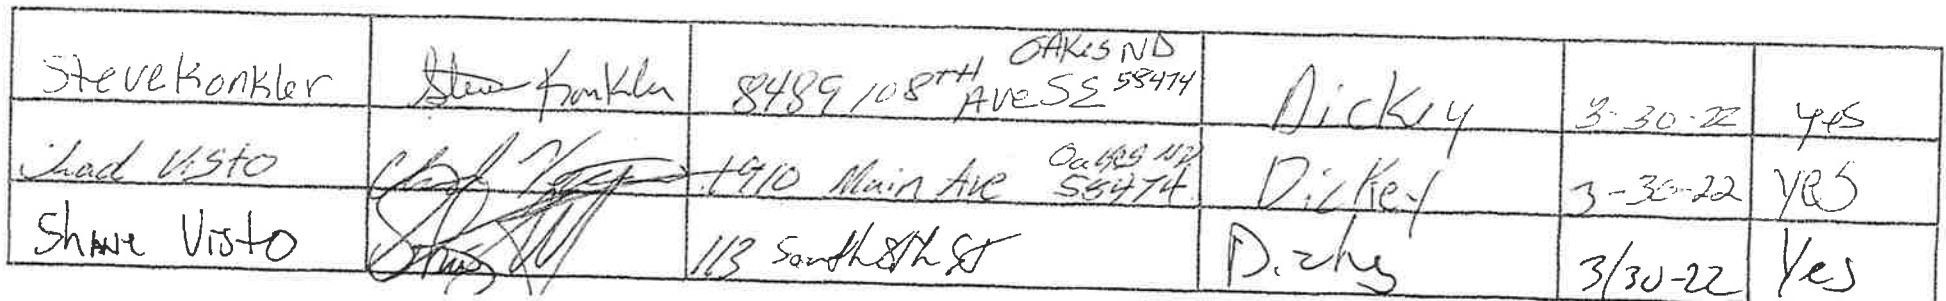 Steve Konkler Steve Konkler 8489 108TH Ave SE Oakes ND 58474 Dickey 3-30-22 yes
Chad Visto 1910 Main Ave Oakes ND 58474 Dickey 3-30-22 yes
Shane Visto 113 South 8th St Dickey 3/30-22 Yes